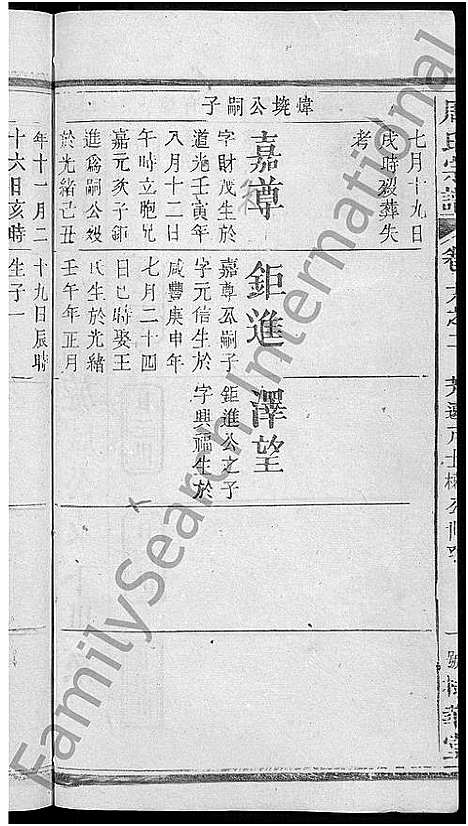 周氏宗譜
七月十九日
戌時歿葬失
考
煒墝公嗣子
嘉尊
字財茂生於
道光壬寅年
八月十二日
午時立胞兄
嘉元次子鉅
進爲嗣公歿
於光緒己丑
年十一月二
十六日亥時
鉅進
嘉尊公嗣子
字元信生於
咸豐庚申年
七月二十四
日巳時娶王
氏生於光緒
壬午年正月
十九日辰時
生子一
澤望
鉅進公之子
字興福生於
FamilySearch International